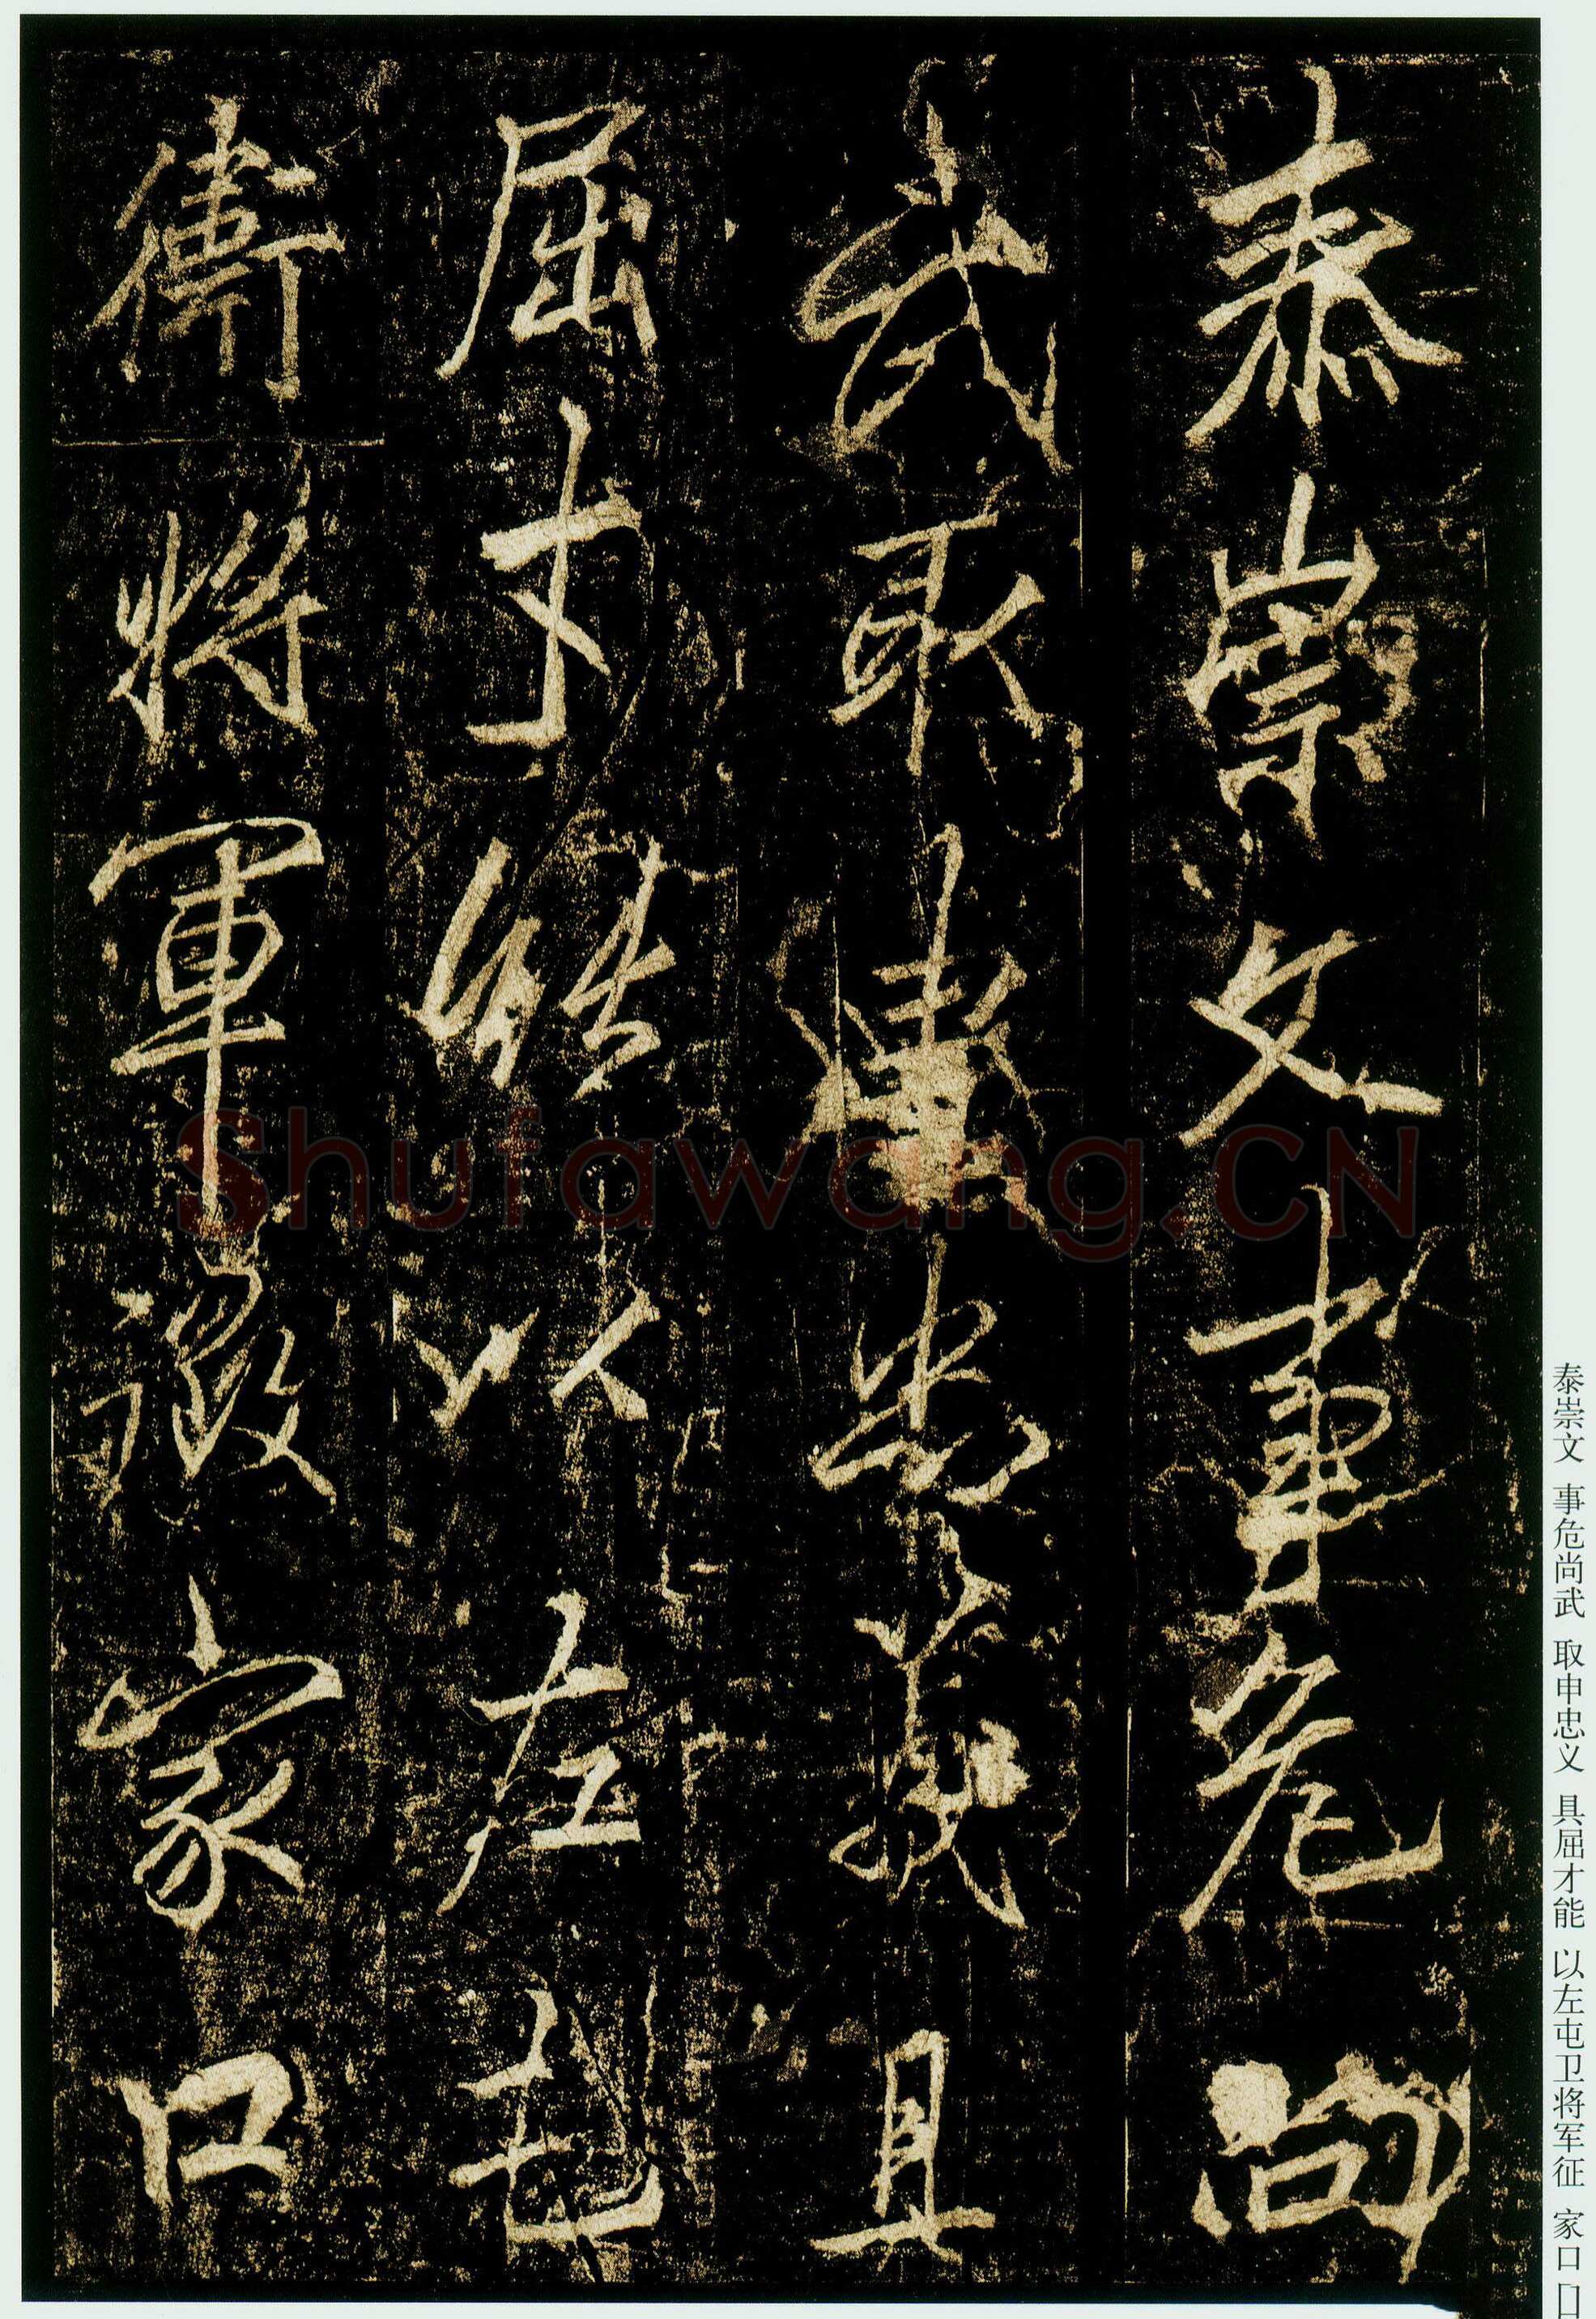 泰崇文事危尚
武取忠義具
屈才能以左屯
衛將軍徵家口
泰崇文 事危尚武 取申忠义 具屈才能 以左屯卫将军征 家口□
Shufawang.CN